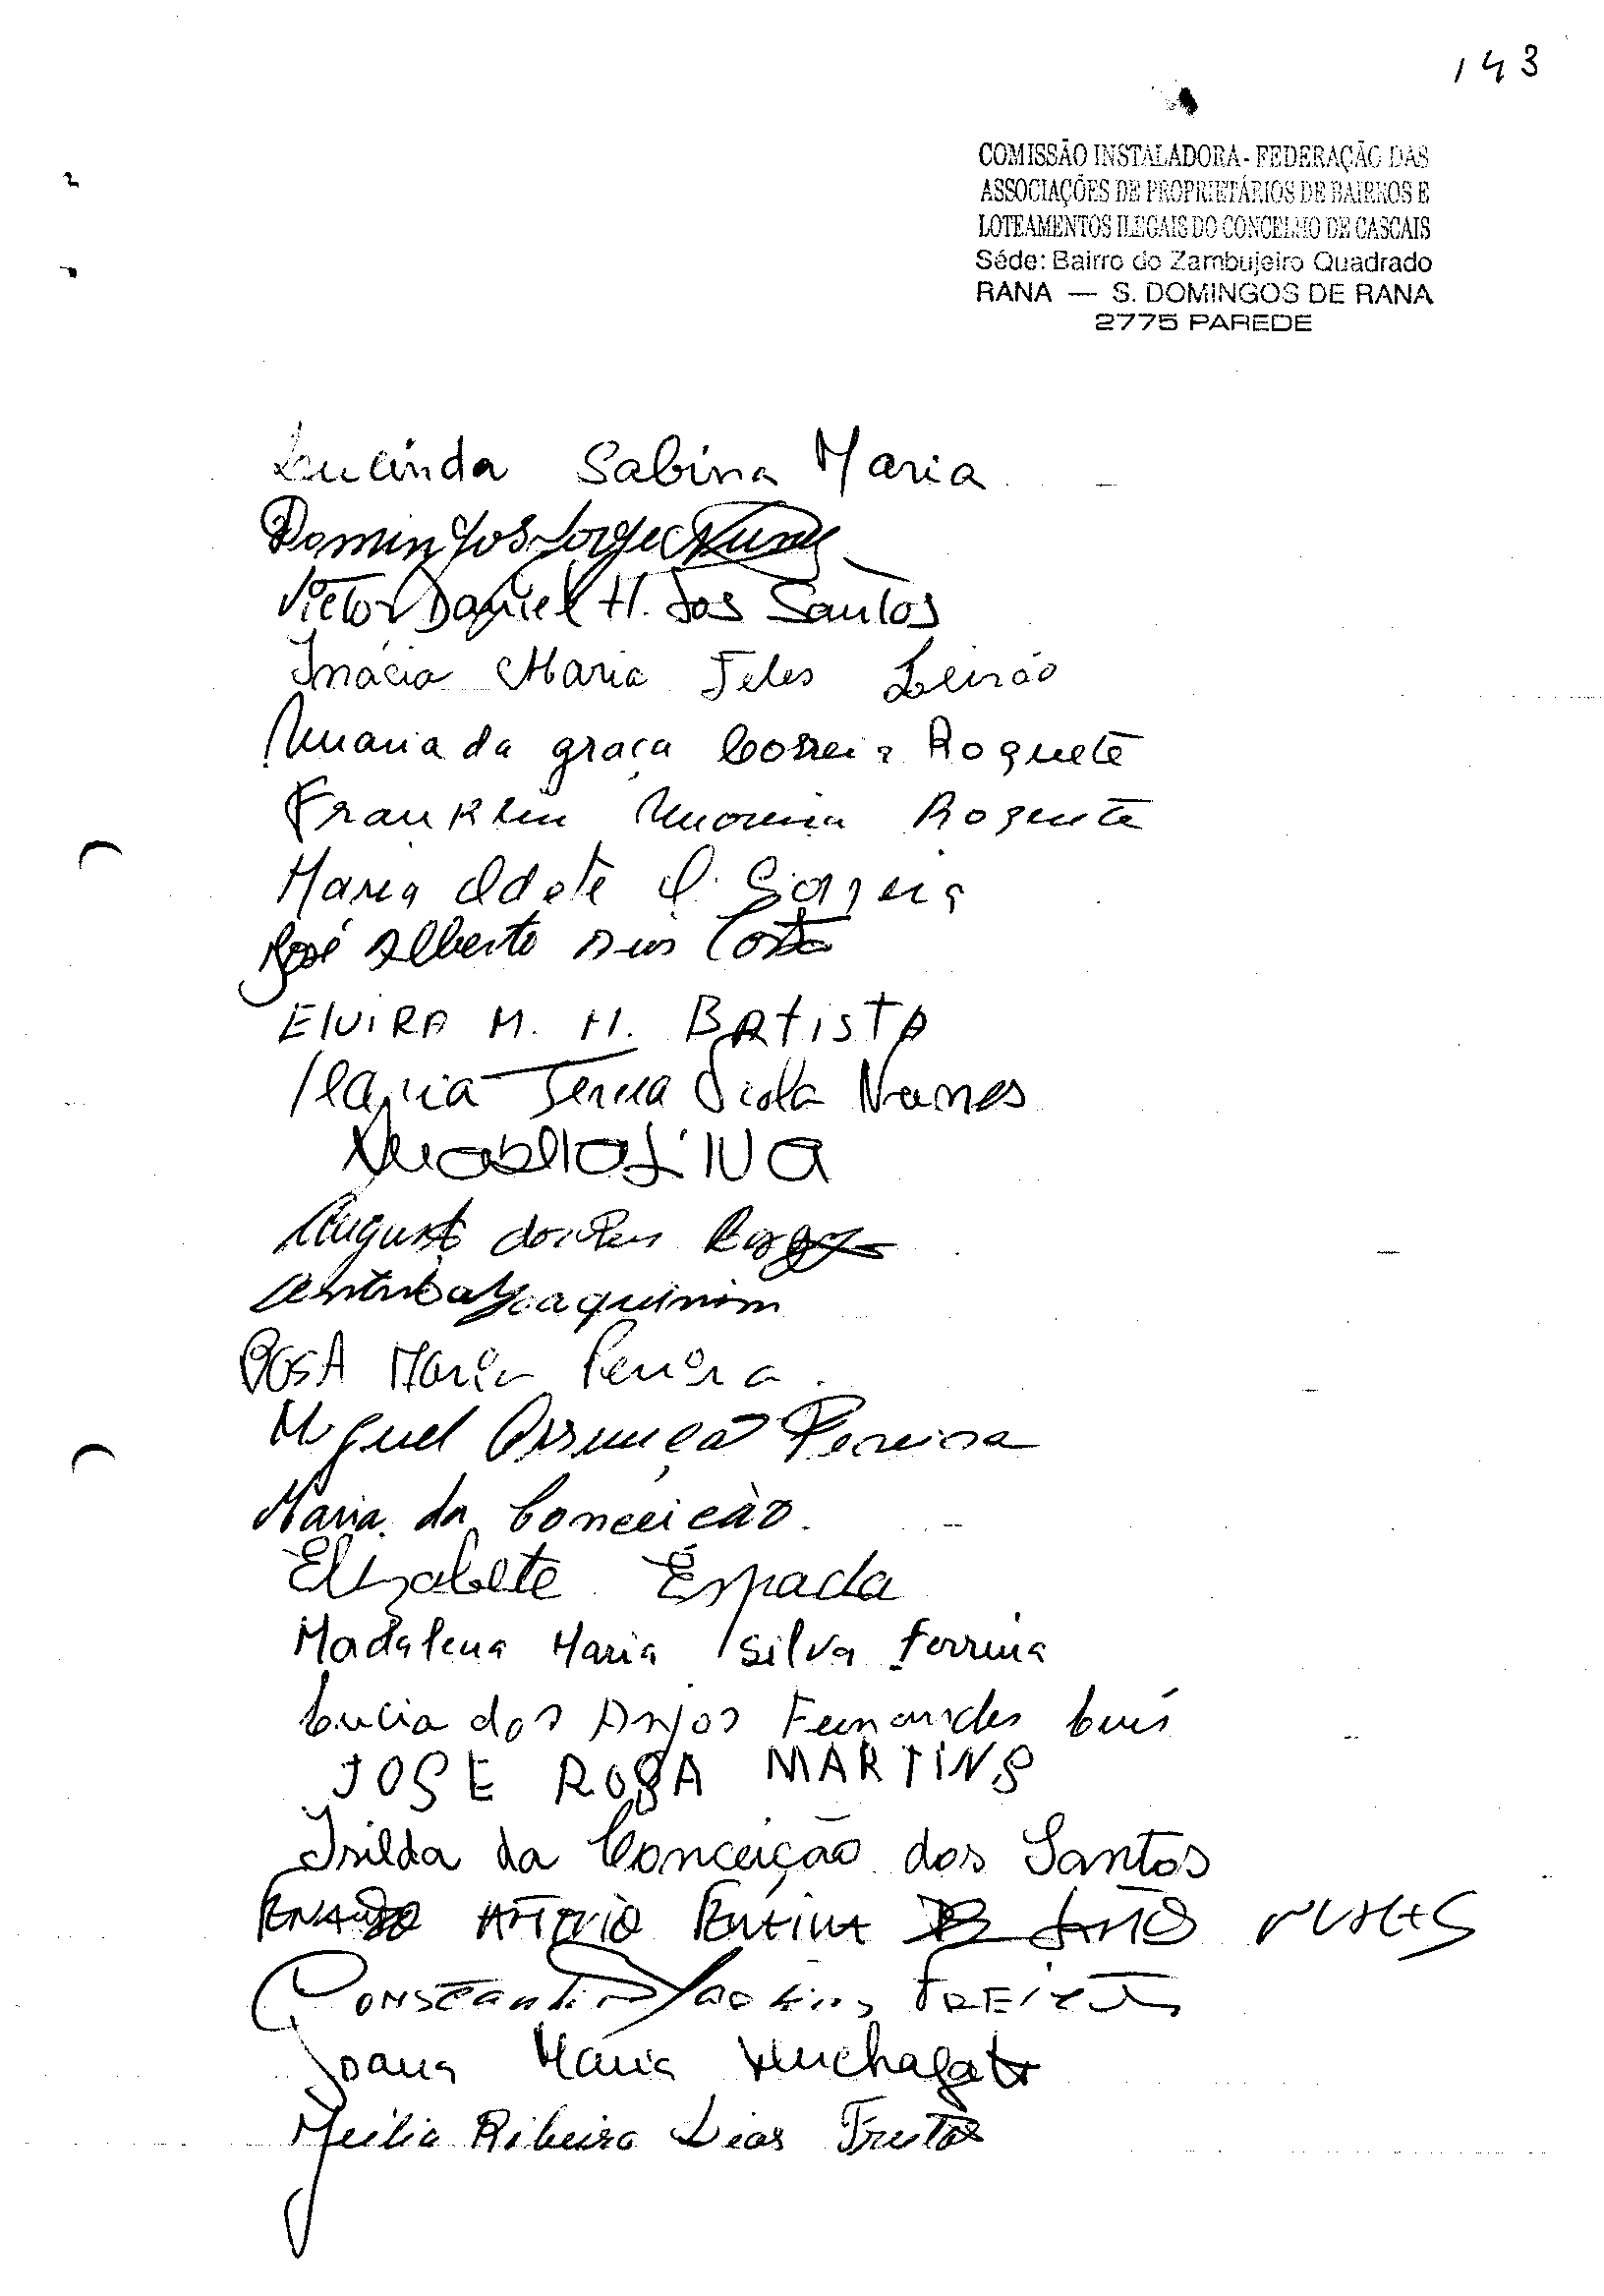 143
COMISSÃO INSTALADORA - FEDERAÇÃO DAS
ASSOCIAÇÕES DE PROPRIETÁRIOS DE BAIRROS E
LOTEAMENTOS ILEGAIS DO CONCELHO DE CASCAIS
Séde: Bairro do Zambujeiro Quadrado
RANA — S. DOMINGOS DE RANA
2775 PAREDE
Lucinda Sabina Maria
Domingos Jorge Nunes
Victor Daniel H. dos Santos
Inácia Maria Teles Leirão
Maria da graça Correia Roquete
Franklin Moreira Roquete
Maria Odete
José Alberto Costa
ElviRA M. H. BAtistA
Maria Teresa Nunes
Augusto dos Reis
Joaquinim
ROSA Maria Pereira.
Miguel Assunção Pereira
Maria da Conceicão.
Elizabete Espada
Madalena Maria Silva Ferreira
Lucia dos Anjos Fernandes Luís
JOSE ROSA MARTINS
Isilda da Conceição dos Santos
ANTONIO NUNES
Constantino FREITAS
Joana Maria
Ribeiro Dias Freitas